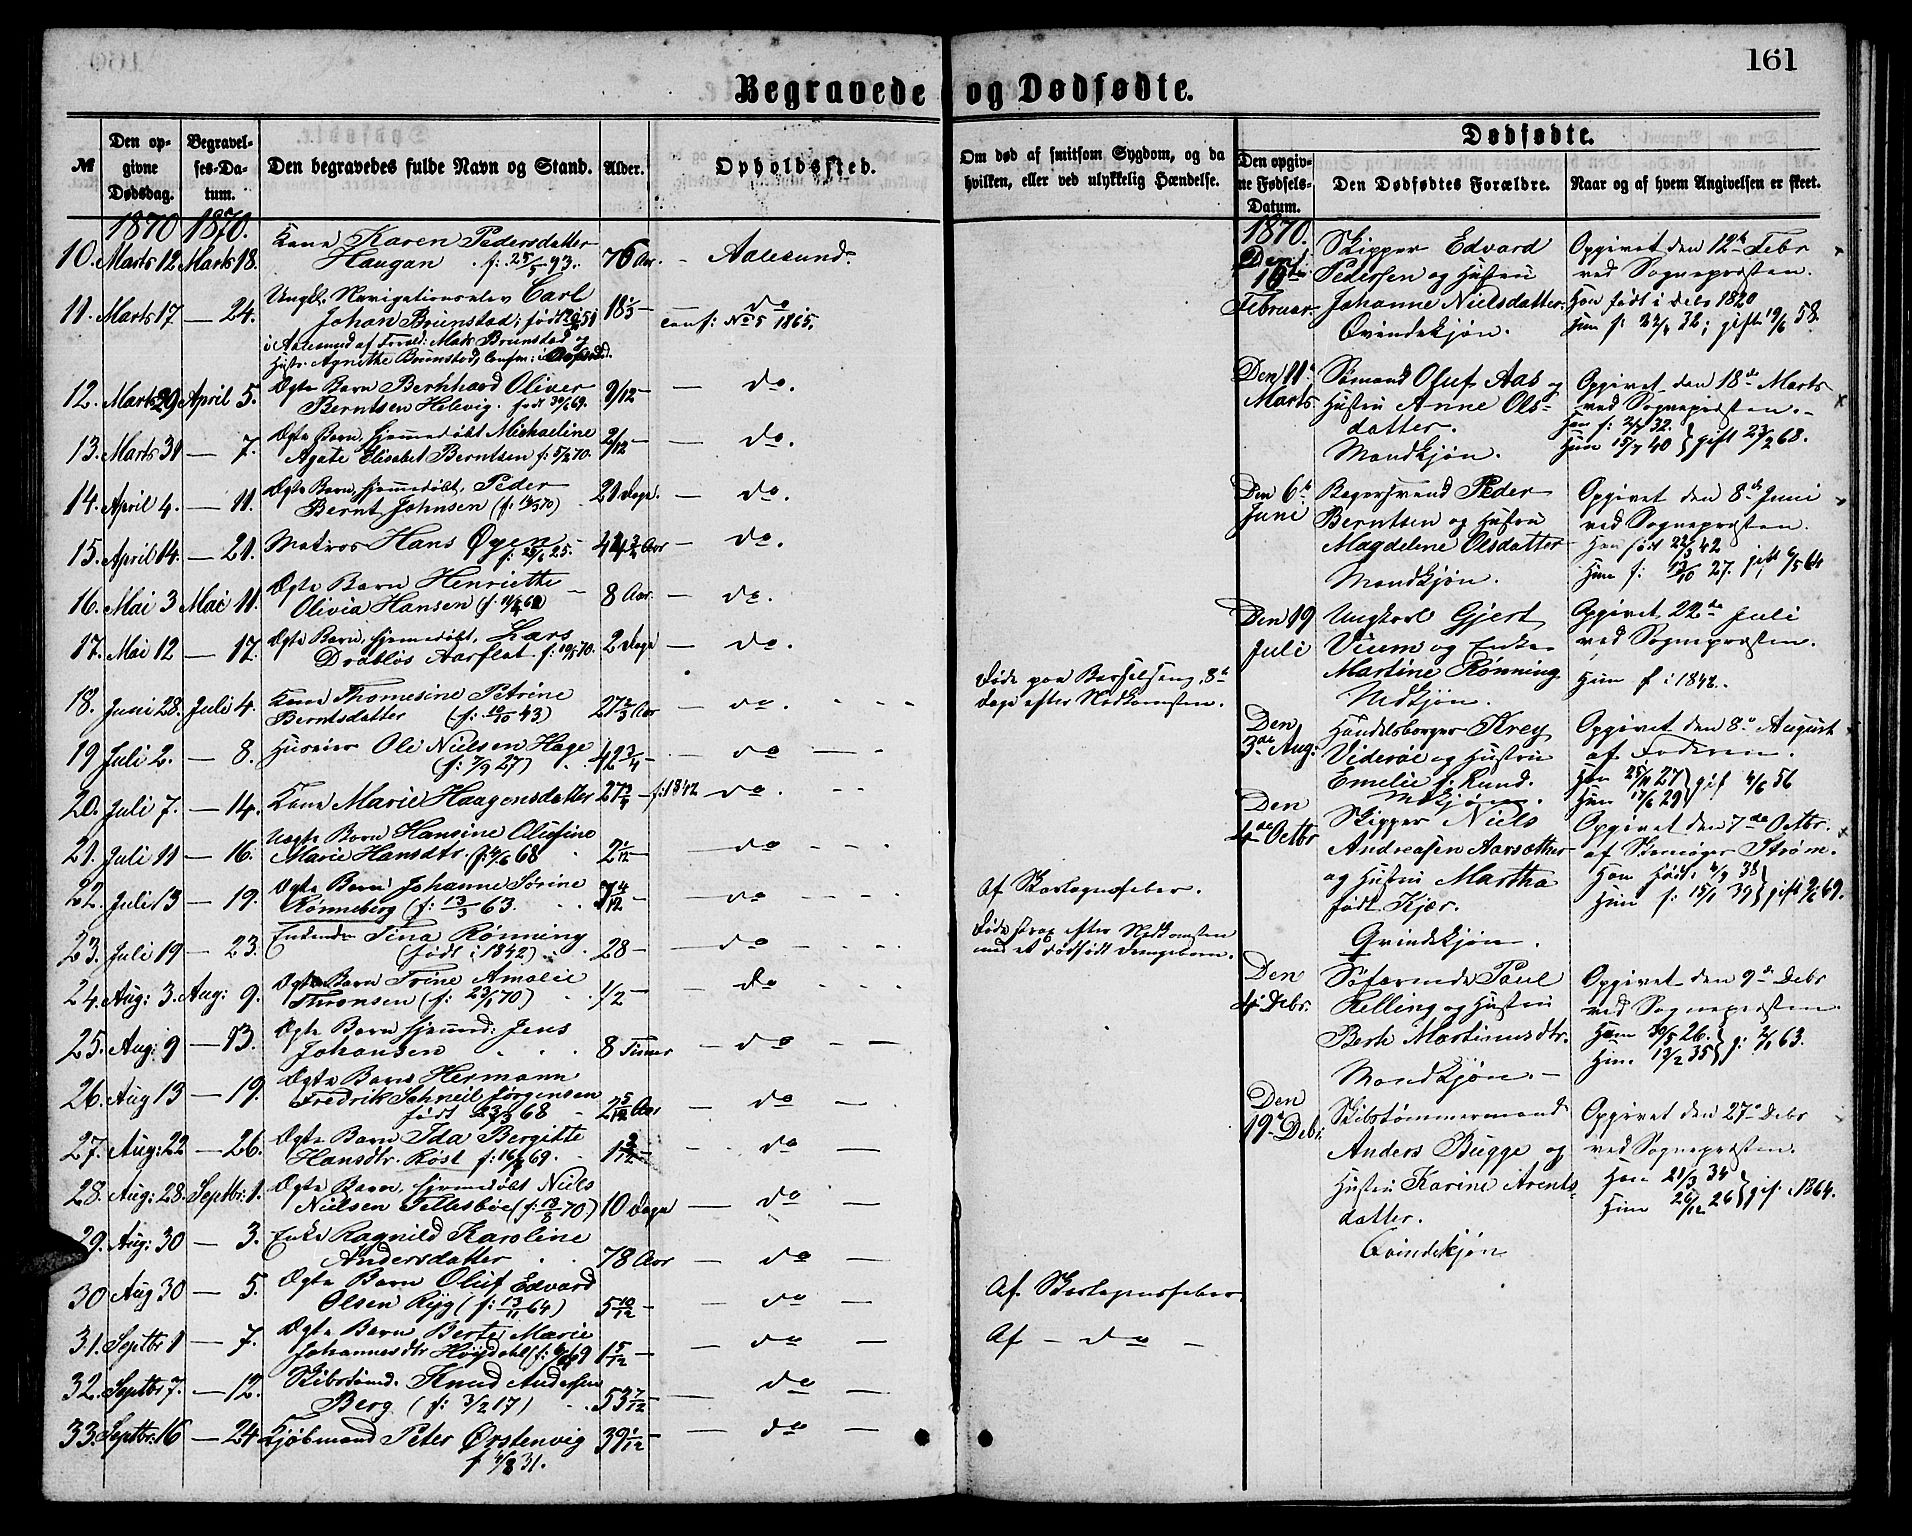 161
Begravede og Dødfødte.
№
Den opgivne Dødsdag.
Begravelses-Datum.
Den begravedes fulde Navn og Stand.
Alder.
Opholdssted.
Om død af smitsom Sygdom, og da hvilken, eller ved ulykkelig Hændelse.
Dødfødte.
Den opgivne Fødsels-Datum.
Den Dødfødtes Forældre.
Naar og af hvem Angivelsen er skeet.
1870 1870.
10. Marts 12 Marts 18. Kone Karen Pedersdatter
Haugan f: 25/5 93. 76 Aar. - Aalesund.
11. Marts 17 — 24. Ungk. Navigationselev Carl
Johan Brunstad; født 51 18 1/3 - do
i Aalesund af Foræld: Mak Brunstad og conf: No 5 1865.
Hustr. Agnethe Brunstad, Confirm: i
12. Marts 29 April 5. Ægte Barn Bernhard Oliver
Berntsen Helevig. født 30/6 69. 9/12 — do.
13. Marts 31 — 7. Ægte Barn, hjemmedøbt Michaeline
Agate Elisabet Berntsen f: 5/2 70. 2/12 — do.
14. April 4. — 11. Ægte Barn, hjemmedøbt, Peder
Bernt Johnsen (f: 14/3 70) 21 Dage. — do.
15. April 14. — 21. Matros Hans Øyen
f: 25. 44 3/4 Aar — do.
16. Mai 3 Mai 11. Ægte Barn Henriette
Olivia Hansen 8 Aar. — do.
17. Mai 12 — 17. Ægte Barn, hjemmedøbt, Lars
Drabløs Aarflot f: 10/5 70. 2 Dage — do.
18. Juni 28. Juli 4. Kone Thomesine Petrine
Berntsdatter (f: 10/10 43) 27 2/3 Aar — do.
Døde paa Barselseng, 8de
Dage efter Nedkomsten.
19 Juli 2. — 8. Huseier Ole Nielsen Hage
(f: 7/9 27) 42 3/4 — do —
20. Juli 7. — 14. Kone Marie Haagensdatter 27 3/4 — f: 1842 do.
21. Juli 11 — 16. Uægte Barn Hansine Olufine
Marie Hansdtr. (f: 4/6 68 2 1/12 — do
22. Juli 13 — 19. Ægte Barn Johanne Sørine
Rønneberg (f: 13/3 63. 7 4/12 — do
Af Skarlagensfeber.
23. Juli 19 — 23. Enkende Tina Rønning
(født i 1842) 28 — do
Døde strax efter Nedkomsten
med et dødfødt Drengebarn.
24. Aug: 3. Aug: 9. Ægte Barn Trine Amalie
Thronsen (f: 23/1 70) 1/2 — do
25. Aug: 9 — 13. Ægte Barn hjemmd: Jens
Johansen 8 Timer — do —
26. Aug 13 — 19. Ægte Barn Hermann
Fredrik Schneil Jørgensen
født 23/3 68 2 5/12 Aar — do —
27. Aug: 22 — 26. Ægte Barn Ida Bergitte
Hansdtr. Røst f: 69. 1 — do
28. Aug: 28. Septbr: 1. Ægte Barn, hjemmedøbt Niels
Nielsen Tellesbøe (f: 18/8 70) 10 Dage — do —
29. Aug: 30 — 3. Enke Ragnild Karoline
Andersdatter 78 Aar — do —
30 Aug 30 — 5. Ægte Barn Oluf Edvard
Olsen Ryg (f: 13/11 64) 5 10/12 — do —
Af Skarlagensfeber.
31. Septbr 1 — 7. Ægte Barn Berte Marie
Johannesdtr Høydahl 69 1 5/12 — do —
Af — do —
32. Septbr 7. — 12. Skibstømd. Knud Andersen
Berg (f: 3/2 17) 53 7/12 — do —
33. Septbr: 16 — 24 Kjøbmand Peter Ørstenvig
f 4/8 31. 39 1/12 — do —
1870.
Den 16de Februar
Skipper Edvard
Pedersen og Hustru
Johanne Nielsdatter.
Qvindekjøn.
Opgivet den 12te Febr
ved Sognepresten.
Han født i Debr 1820
Hun f: 32; gift 19/6 58.
Den 11te Marts
Sømand Oluf Aas og
Hustru Anne Ols-
datter.
Mandkjøn.
Opgivet den 18de Marts
ved Sognepresten.
Han f: 32.
Hun 15/7 40 } gift 27/2 68.
Den 6te Juni
Bagersvend Peder
Berntsen og Hustru
Magdelene Olsdatter
Mandkjøn.
Opgivet den 8de Juni
ved Sognepresten.
Han født 22/3 42
Hun f: 13/10 27. gift 6/5 64
Den 19 Juli
Ungkarl Gjert
Viem og Enke
Martine Rønning.
Mdkjøn.
Opgivet 22de Juli
ved Sognepresten.
Hun f i 1842.
Den 3de Aug:
Handelsborger Krey
Viderøe og Hustru
Emelie f. Rund.
Mdkjøn.
Opgivet den 8de August
af Faderen.
Han 27 } gift 4/6 56
Hun 17/6 29
Den 4de Octbr
Skipper Niels
Andreasen Aarsæther
og Hustru Martha
født Kjær.
Qvindekjøn.
Opgivet den 7de Octbr.
af Skomager Strøm.
Han født 4/9 38 } gift 69.
Hun f: 15/1 39
Den 4de Debr.
Søfarende Paul
Relling og Hustru
Berte Martinusdtr.
Mandkjøn. —
Opgivet den 9de Debr
ved Sognepresten.
Han 26. } g: 2/1 63.
Hun 13/2 35
Den 19de Debr.
Skibstømmermand
Anders Bugge og
Hustru Karine Arents-
datter.
Qvindekjøn
Opgivet den 27de Debr
ved Sognepresten.
Han 21/3 34 } gift 1864.
Hun 26/12 26